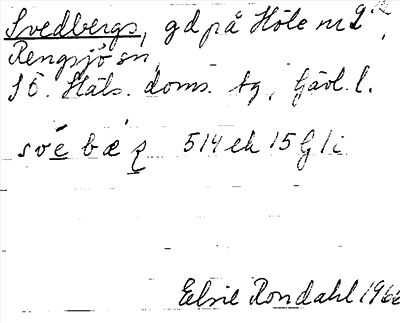 Svedbergs, gd på Höle nr 2
Rengsjö sn,
SÖ. Häls. doms. tg, Gävl. l.
své bæ ʂ 514 ek 15 G 1 i
Elsie Rondahl 1966